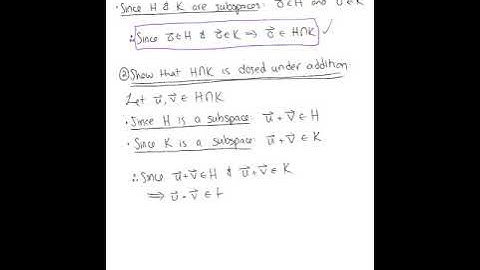 · Since H & K are subspaces: 0⃗ ∈ H and 0⃗ ∈ K
∴ Since 0⃗ ∈ H & 0⃗ ∈ K ⟹ 0⃗ ∈ H∩K ✓
② Show that H∩K is closed under addition
Let u⃗, v⃗ ∈ H∩K
· Since H is a subspace: u⃗ + v⃗ ∈ H
· Since K is a subspace: u⃗ + v⃗ ∈ K
∴ Since u⃗+v⃗ ∈ H & u⃗+v⃗ ∈ K
⟹ u⃗ + v⃗ ∈